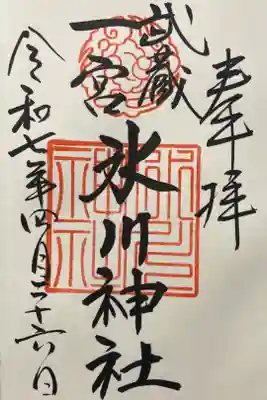 奉拝
武蔵
一宮
氷川神社
令和七年四月二十六日